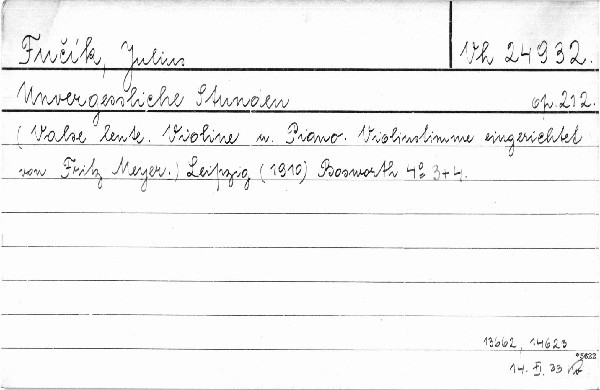 Fučík, Julius
Vh 24932.
Unvergessliche Stunden op. 212.
(Valse lente. Violine u. Piano. Violinstimme eingerichtet
von Fritz Meyer.) Leipzig (1910) Bosworth 4° 3+4.
13662, 14623
*5622
14. II. 33